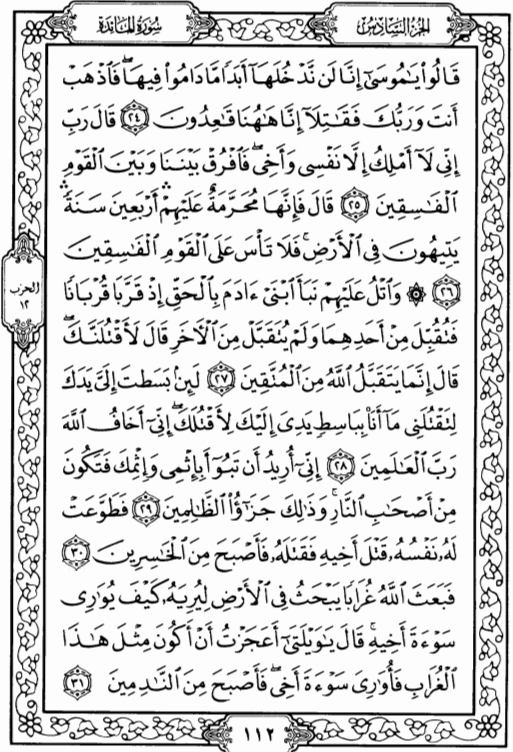 سُورَةُ المَائِدَة
الجُزءُ السَّادِسُ
قَالُواْ يَـٰمُوسَىٰٓ إِنَّا لَن نَّدۡخُلَهَآ أَبَدٗا مَّا دَامُواْ فِيهَا فَٱذۡهَبۡ
أَنتَ وَرَبُّكَ فَقَـٰتِلَآ إِنَّا هَـٰهُنَا قَـٰعِدُونَ ٢٤ قَالَ رَبِّ
إِنِّي لَآ أَمۡلِكُ إِلَّا نَفۡسِي وَأَخِيۖ فَٱفۡرُقۡ بَيۡنَنَا وَبَيۡنَ ٱلۡقَوۡمِ
ٱلۡفَـٰسِقِينَ ٢٥ قَالَ فَإِنَّهَا مُحَرَّمَةٌ عَلَيۡهِمۡۛ أَرۡبَعِينَ سَنَةٗۛ
يَتِيهُونَ فِي ٱلۡأَرۡضِۚ فَلَا تَأۡسَ عَلَى ٱلۡقَوۡمِ ٱلۡفَـٰسِقِينَ
٢٦ ۞ وَٱتۡلُ عَلَيۡهِمۡ نَبَأَ ٱبۡنَيۡ ءَادَمَ بِٱلۡحَقِّ إِذۡ قَرَّبَا قُرۡبَانٗا
فَتُقُبِّلَ مِنۡ أَحَدِهِمَا وَلَمۡ يُتَقَبَّلۡ مِنَ ٱلۡأٓخَرِ قَالَ لَأَقۡتُلَنَّكَۖ
قَالَ إِنَّمَا يَتَقَبَّلُ ٱللَّهُ مِنَ ٱلۡمُتَّقِينَ ٢٧ لَئِنۢ بَسَطتَ إِلَيَّ يَدَكَ
لِتَقۡتُلَنِي مَآ أَنَا۠ بِبَاسِطٖ يَدِيَ إِلَيۡكَ لِأَقۡتُلَكَۖ إِنِّيٓ أَخَافُ ٱللَّهَ
رَبَّ ٱلۡعَـٰلَمِينَ ٢٨ إِنِّيٓ أُرِيدُ أَن تَبُوٓأَ بِإِثۡمِي وَإِثۡمِكَ فَتَكُونَ
مِنۡ أَصۡحَـٰبِ ٱلنَّارِۚ وَذَٰلِكَ جَزَٰٓؤُاْ ٱلظَّـٰلِمِينَ ٢٩ فَطَوَّعَتۡ
لَهُۥ نَفۡسُهُۥ قَتۡلَ أَخِيهِ فَقَتَلَهُۥ فَأَصۡبَحَ مِنَ ٱلۡخَـٰسِرِينَ ٣٠
فَبَعَثَ ٱللَّهُ غُرَابٗا يَبۡحَثُ فِي ٱلۡأَرۡضِ لِيُرِيَهُۥ كَيۡفَ يُوَٰرِي
سَوۡءَةَ أَخِيهِۚ قَالَ يَـٰوَيۡلَتَىٰٓ أَعَجَزۡتُ أَنۡ أَكُونَ مِثۡلَ هَـٰذَا
ٱلۡغُرَابِ فَأُوَٰرِيَ سَوۡءَةَ أَخِيۖ فَأَصۡبَحَ مِنَ ٱلنَّـٰدِمِينَ ٣١
الحزب
١٢
١١٢